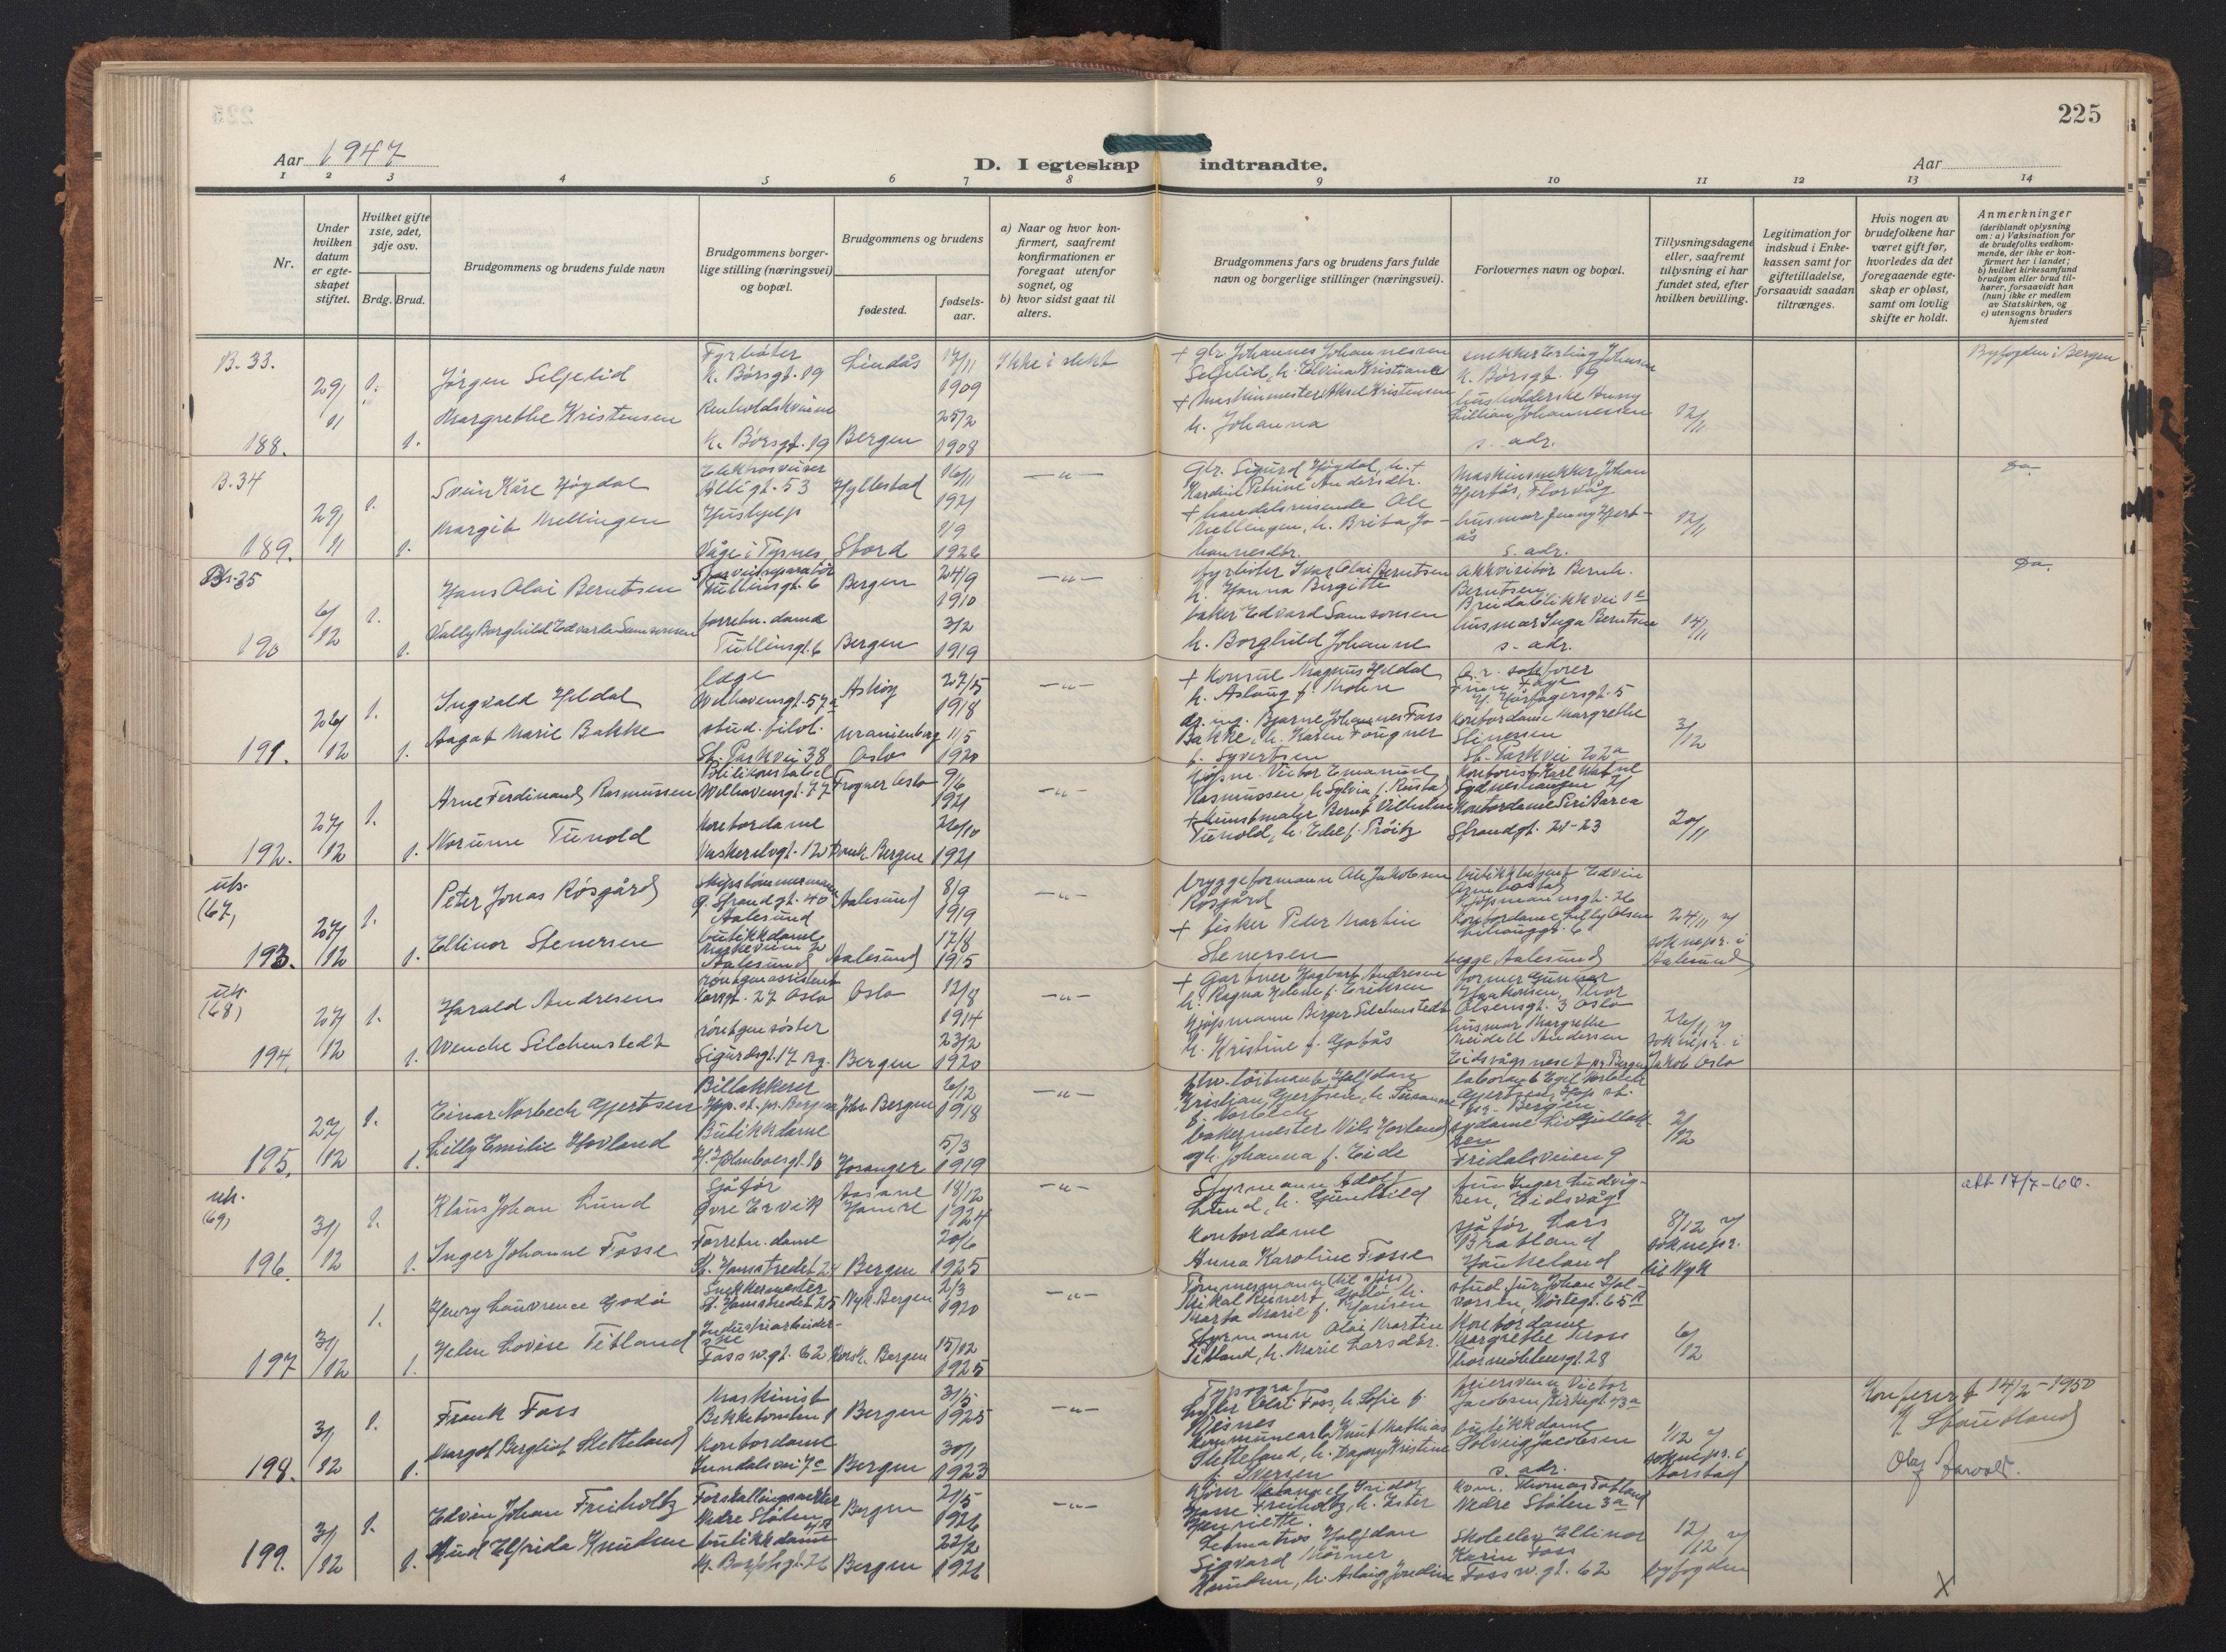 225
Aar 1947
D. I egteskap indtraadte.
Aar
1 2 3 4 5 6 7 8 9 10 11 12 13 14
Nr.
Under hvilken datum er egteskapet stiftet.
Hvilket gifte 1ste, 2det, 3dje osv.
Brdg. Brud.
Brudgommens og brudens fulde navn
Brudgommens borgerlige stilling (næringsvei) og bopæl.
Brudgommens og brudens
fødested.
fødselsaar.
a) Naar og hvor konfirmert, saafremt konfirmationen er foregaat utenfor sognet, og
b) hvor sidst gaat til alters.
Brudgommens fars og brudens fars fulde navn og borgerlige stillinger (næringsvei).
Forlovernes navn og bopæl.
Tillysningsdagene eller, saafremt tillysning ei har fundet sted, efter hvilken bevilling.
Legitimation for indskud i Enkekassen samt for giftetilladelse, forsaavidt saadan tiltrænges.
Hvis nogen av brudefolkene har været gift før, hvorledes da det foregaaende egteskap er opløst, samt om lovlig skifte er holdt.
Anmerkninger (deriblandt oplysning om: a) Vaksination for de brudefolks vedkommende, der ikke er konfirmert her i landet; b) hvilket kirkesamfund brudgom eller brud tilhører, forsaavidt han (hun) ikke er medlem av Statskirken, og c) utensogns bruders hjemsted
B. 33.
188.
29/11
1.
1.
Jørgen Seljelid
Margrethe Kristensen
Fyrbøter
K. Børsgt. 19
Renholdskvinne
K. Børsgt. 19
Lindås
Bergen
17/11 1909
25/2 1908
Ikke i slekt
+ gbr. Johannes Johannessen
Seljelid, h. Elvina Kristiane
+ Maskinmester Aksel Kristensen
h. Johanna
snekker Erling Johnsen
K. Børsgt. 19
husholderske Anny
Lillian Johannessen
s. adr.
12/11
Byfogden i Bergen
B. 34
189.
29/11
1.
1.
Svein Kåre Høydal
Margit Mellingen
Elektrosveiser
Allégt. 53
Hushjelp
Våge i Tysnes
Hyllestad
Stord
16/11 1921
1/9 1926
— " —
Gbr. Sigurd Høydal, h. +
Kardine Petrine Andersdtr.
+ handelsreisende Ole
Mellingen, h. Brita Johannesdtr.
Maskinsnekker Johan
Hjertås, Florvåg
husmor Jenny Hjertås
s. adr.
12/11
Do.
B. 35
190
6/12
1.
1.
Hans Olai Berntsen
Vally Borghild Edvarda Samsonsen
Sporveisreparatør
Tullinsgt. 6
forretn. dame
Tullinsgt. 6
Bergen
Bergen
24/9 1910
3/2 1919
— " —
fyrbøter Ivar Olai Berntsen
h. Hanna Birgitte
baker Edvard Samsonsen
h. Borghild Johanne
Akkvisitør Bernh.
Berntsen,
husmor Inga Berntsen
s. adr.
14/11
Do.
191.
26/12
1.
1.
Ingvald Hjeldal
Aagot Marie Bakke
læge
Welhavensgt. 57a
stud. filol.
St. Parkvei 38
Askøy
Uranienborg
Oslo
27/5 1918
11/5 1920
— " —
+ Konsul Magnus Heldal
h. Aslaug f. Mohn
dr. ing. Bjarne Johannes Foss
Bakke, h. Karen Fougner
f. Syvertsen
O.r. sakfører
H. Hårfagersgt. 5
Kontordame Margrethe
Stinessen
St. Parkvei 22a
3/12
192.
27/12
1.
1.
Arne Ferdinand Rasmussen
Norunn Tunold
Politikonstabel
Welhavensgt. 77
Kontordame
Vaskerelvgt. 12
Frogner Oslo
Domk. Bergen
9/6 1921
26/10 1921
— " —
Kjøpm. Victor Emanuel
Rasmussen, h. Sylvia f. Rustad
+ kunstmaler Bernt Vilhelm
Tunold, h. Edel f. Trøitz
Kontorist Karl
Sydneshaugen
Kontordame Siri Barca
Strandgt. 21-23
20/11
uts.
(67)
193.
27/12
1.
1.
Peter Jonas Røsgård
Ellinor Stenersen
skipstømmermann
Ø. Strandgt. 40
Aalesund
butikkdame
Aalesund
Aalesund
Aalesund
8/9 1919
17/8 1915
— " —
bryggeformann Ole Jakobsen
Røsgård
+ fisker Peder Martin
Stenersen
butikkbetjent Edvin
Kjøpmannsgt. 26
Kontordame Lilly Olsen
begge Aalesund
24/11 v/
soknepr. i
Aalesund
uts.
(68)
194.
27/12
1.
1.
Harald Andresen
Wenche Silchenstedt
røntgenassistent
Korsgt. 27 Oslo
røntgensøster
Sigurdsgt. 17 Bg.
Oslo
Bergen
12/8 1914
23/2 1920
— " —
+ Gartner Hagbart Andresen
h. Ragna Helene f. Eriksen
Kjøpmann Birger Silchenstedt
h. Kristine f. Gobås
former Gunnar
Haakonsen, Thor
Olsensgt. 3 Oslo
husmor Margrethe
Meidell Andersen
Eidsvågsneset pr. Bergen
26/11 v/
soknepr. i
Jakob Oslo
195.
27/12
1.
1.
Einar Norbech Gjertsen
Lilly Emilie Hovland
Billakkerer
Hop. st. pr. Bergen
Butikkdame
Joh. Bergen
Hosanger
6/12 1918
5/3 1919
— " —
flv. løitnant Halfdan
Kristian Gjertsen, h. Susanne
f. Norbech
bakermester Nils Hovland
og h. Johanna f. Eide
laborant Egil Norbech
Gjertsen, Hop st.
pr. Bergen
sydame Liv
Fridalsveien 9
2/12
uts.
(69)
196.
31/12
1.
1.
Klaus Johan Lund
Inger Johanne Fosse
Sjåfør
Øvre Ervik
Forretn. dame
St. Hansstredet 24
Aasane
Hamre
Bergen
18/12 1924
20/6 1925
— " —
Styrmann Adolf
Lund, h. Gunhild
Kontordame
Anna Karoline Fosse
fru Inger Ludvigsen, Eidsvåg
sjåfør Lars
Bratland
Haukeland
8/12 v/
soknepr.
til Nyk
att 17/7-66.
197
31/12
1.
1.
Henry Lauvrence Godø
Helen Lovise Titland
Snekkermester
St. Hansstredet 25
Industriarbeiderske
Fossw.gt. 62
Nyk. Bergen
Korsk. Bergen
2/3 1920
15/12 1925
— " —
Tømmermann (til sjøss)
Mikal Reinert Godø h.
Marta Marie f. Hansen
Styrmann Olai Martin
Titland, h. Marie Larsdtr.
stud. jur. Johan Halvorsen, Nøstegt. 65A
Kontordame
Margrethe Moss
Thormøhlensgt. 28
6/12
198.
31/12
1.
1.
Frank Foss
Margot Bergliot Sletteland
Maskinist
Bekketomten 1
Kontordame
Lundalsvei 7c
Bergen
Bergen
31/5 1925
30/1 1923
— " —
Typograf
Olai Foss, h. Sofie f.
Kommunearb. Knut Mathias
Sletteland, h. Dagny Kristine
f. Iversen
feiersvenn Victor
Jacobsen, Kirkegt. 73a
butikkdame
Solveig Jacobsen
s. adr.
1/12 v/
soknepr. i
Aarstad
Konferert 14/2-1950
Olaf
199.
31/12
1.
1.
Edvin Johan Freiholtz
Aud Elfrida Knudsen
Nedre Stølen
butikkdame
Bergen
Bergen
21/5 1926
22/2 1926
— " —
Hane Freiholtz, h. Ester
Henriette.
Halfdan
Sigvard Mørner
Knudsen, h. Aslaug Josedine
kom. Thomas Totland
Nedre Stølen 3a
Skoleelev Ellinor
Karin Foss
Fossw.gt. 62
12/12 v/
byfogden
X